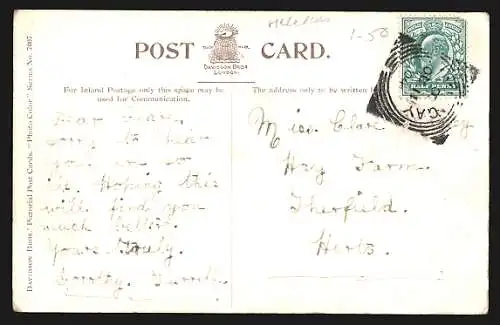 POST CARD.
DAVIDSON BROS
LONDON.
1-50
For Inland Postage only this space may be
used for Communication.
The address only to be written
HALF PENNY
Dear
sorry to hear
you
ill. Hoping this
will find you
much better.
Yours truly.
Dorothy.
Miss Clare
Hay Farm
Therfield.
Herts.
DAVIDSON BROS.' Pictorial Post Cards. "Photo-Color" Series No. 7007